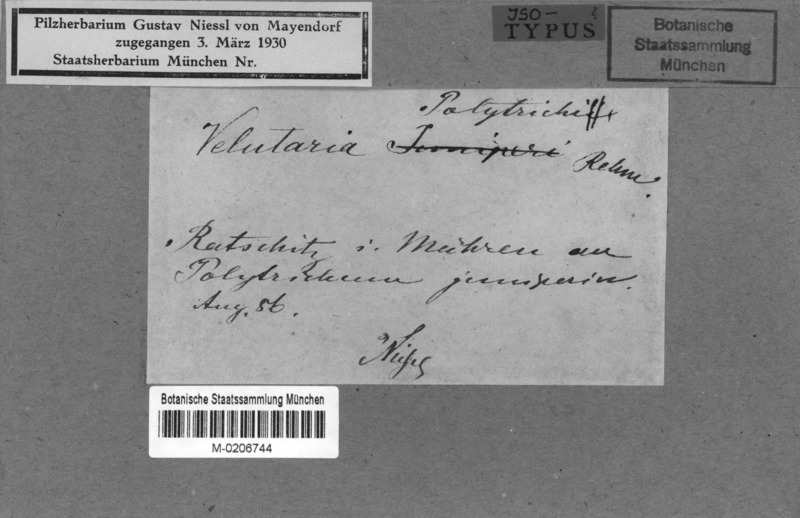 Pilzherbarium Gustav Niessl von Mayendorf
zugegangen 3. März 1930
Staatsherbarium München Nr.
ISO- ?
TYPUS
Botanische
Staatssammlung
München
Polytrichi
Velutaria Juniperi Rehm.
Ratschitz i. Mähren an
Polytrichum juniperin.
Aug. 56.
Niessl
Botanische Staatssammlung München
M-0206744